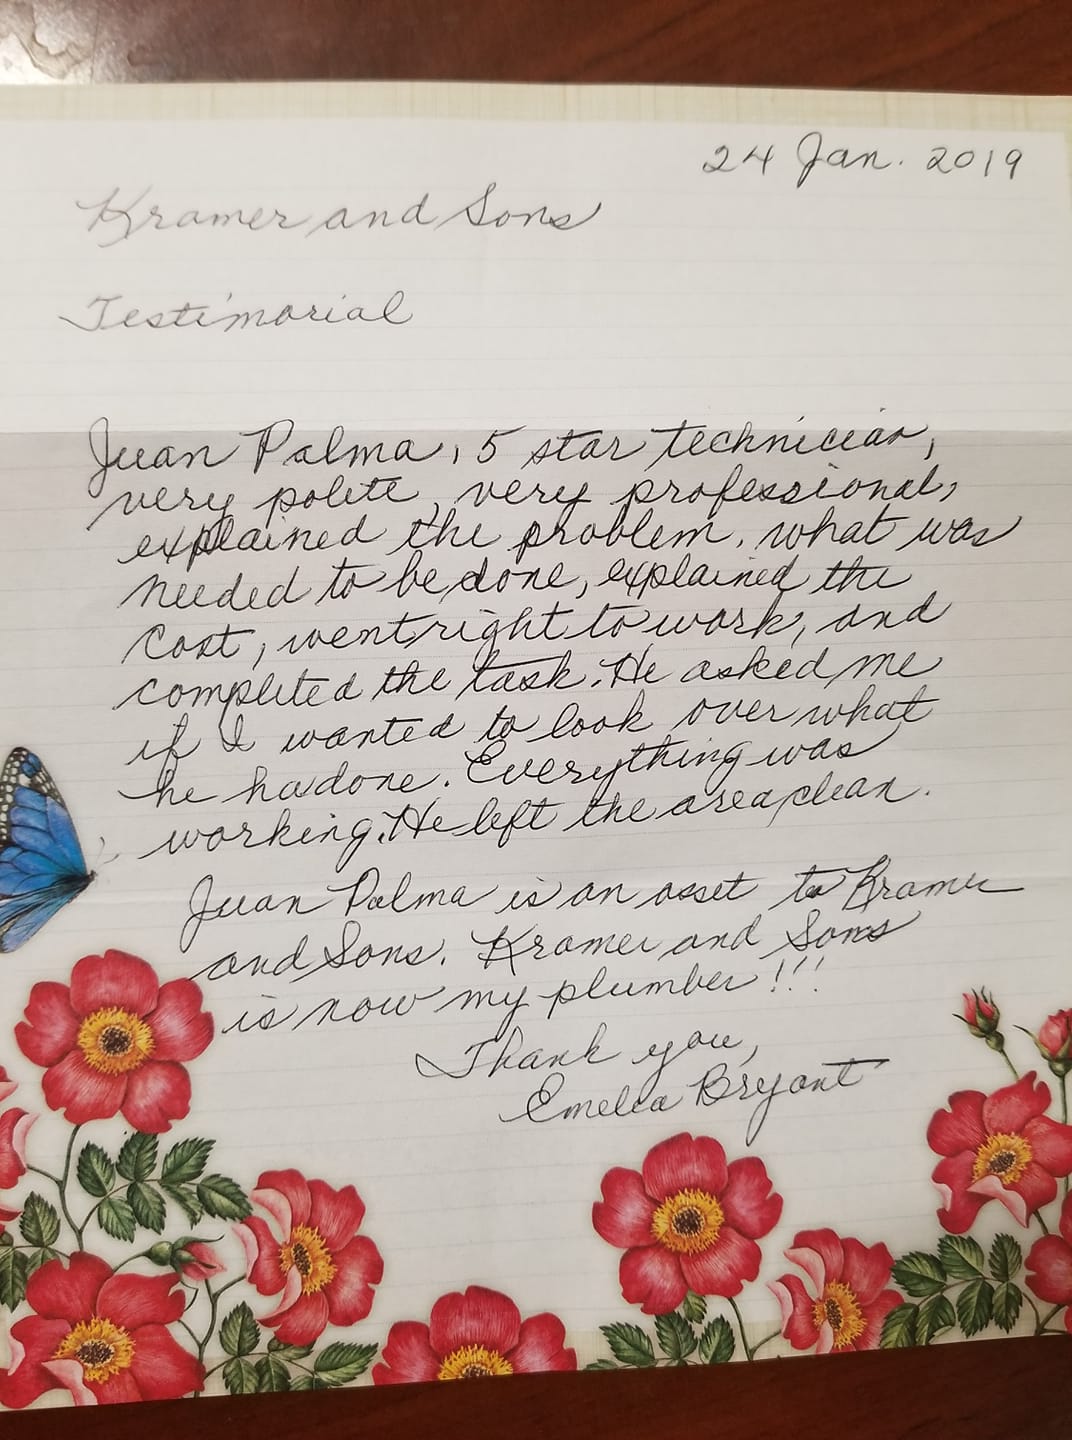 24 Jan. 2019
Kramer and Sons
Testimonial
Juan Palma, 5 star technician,
very polite, very professional,
explained the problem, what was
needed to be done, explained the
cost, went right to work, and
completed the task. He asked me
if I wanted to look over what
he had done. Everything was
working. He left the area clean.
Juan Palma is an asset to Kramer
and Sons. Kramer and Sons
is now my plumber!!!
Thank you,
Emelia Bryant